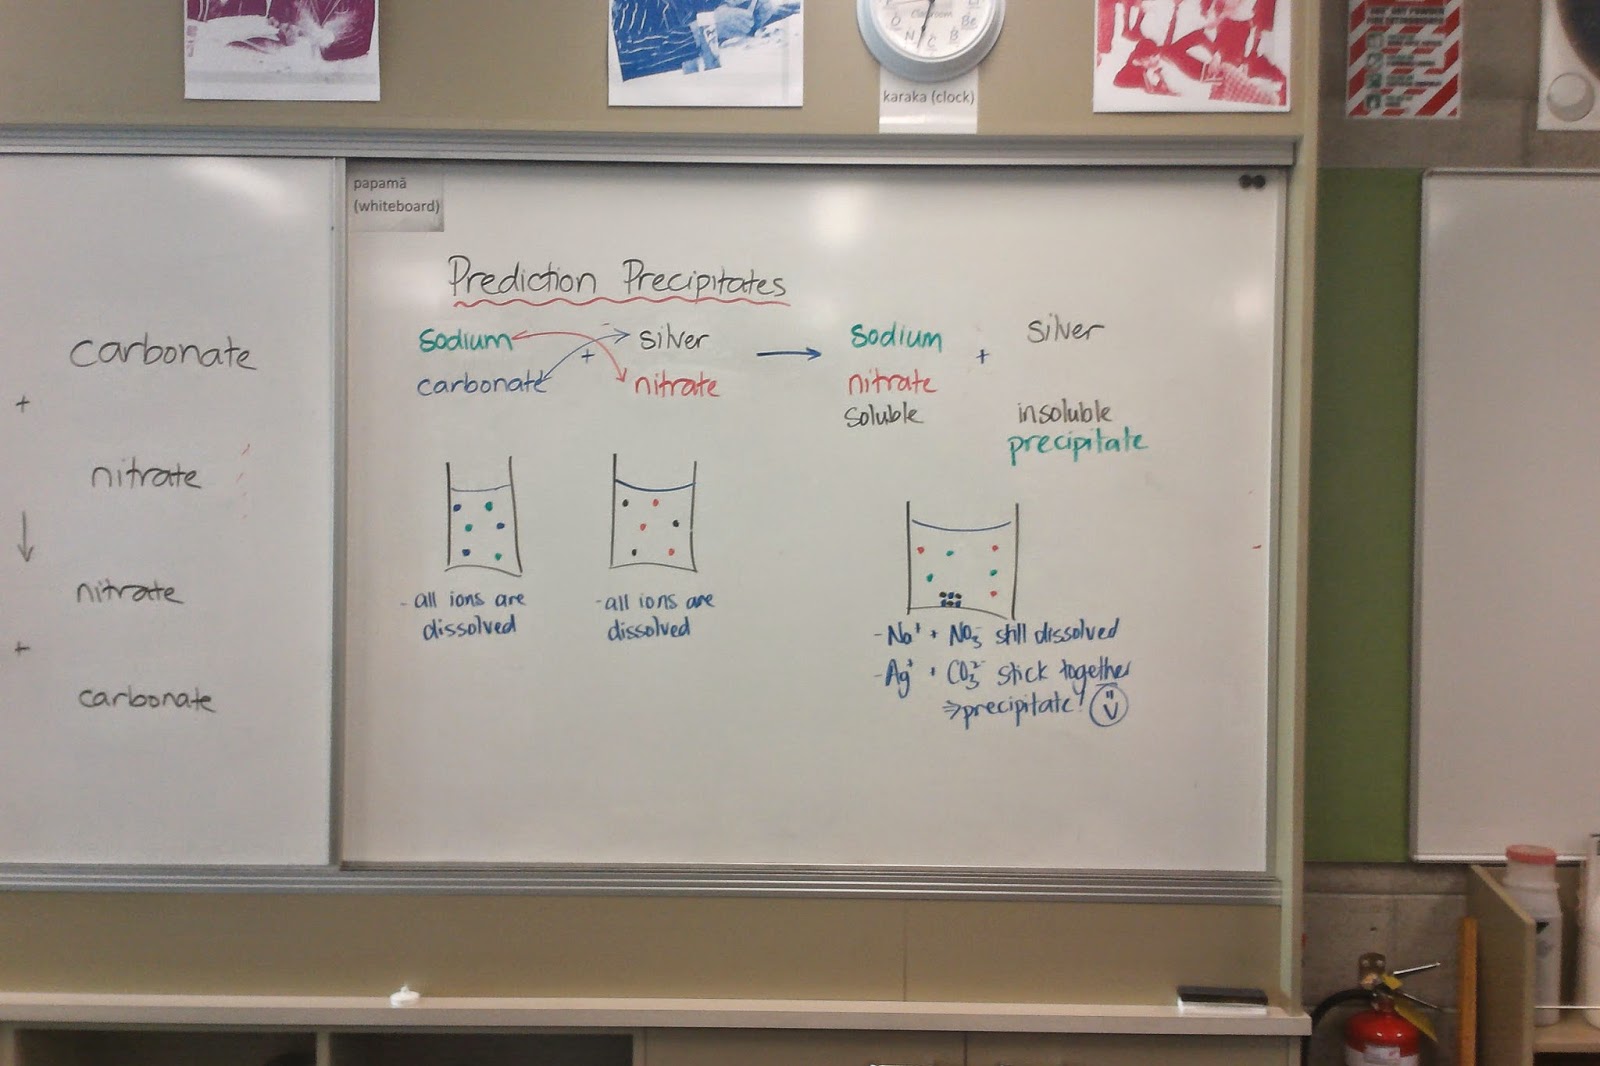 O
N
C
B
Be
Classroom
karaka (clock)
papamā
(whiteboard)
carbonate
+
nitrate
↓
nitrate
+
carbonate
Prediction Precipitates
sodium + silver → sodium + silver
carbonate nitrate nitrate
soluble insoluble
precipitate
- all ions are
dissolved
- all ions are
dissolved
- Na⁺ + NO₃⁻ still dissolved
- Ag⁺ + CO₃²⁻ stick together
⇒ precipitate!